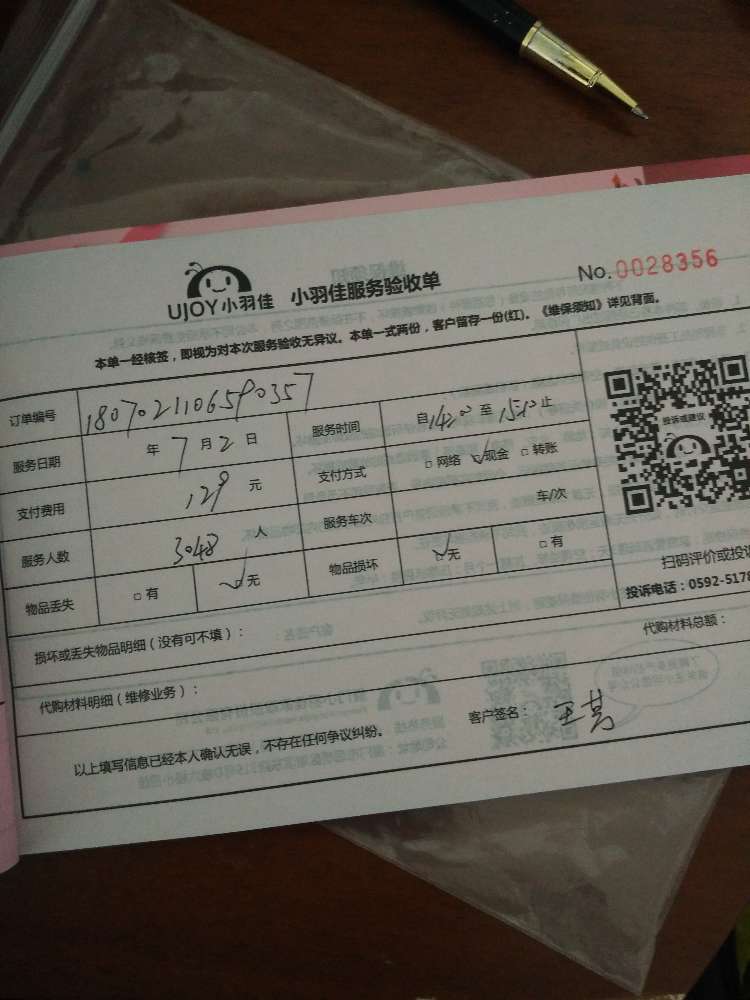 UJOY小羽佳 小羽佳服务验收单 No.0028356
本单一经核签，即视为对本次服务验收无异议。本单一式两份，客户留存一份(红)。《维保须知》详见背面。
订单编号 1807021106590357
服务日期 年 7 月 2 日 服务时间 自 14:20 至 15:20 止
支付费用 129 元 支付方式 □ 网络 ✓现金 □ 转账
服务人数 3048 人 服务车次 车/次
物品丢失 □ 有 ✓无 物品损坏 ✓无 □ 有
投诉或建议
扫码评价或投诉
投诉电话：0592-5178
损坏或丢失物品明细（没有可不填）：
代购材料明细（维修业务）： 代购材料总额：
以上填写信息已经本人确认无误，不存在任何争议纠纷。 客户签名：